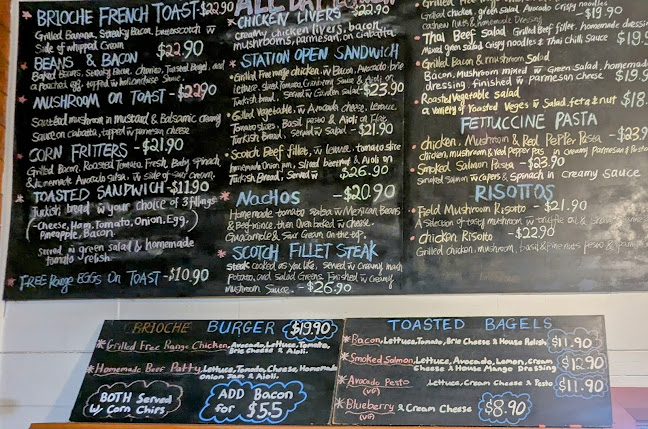 BRIOCHE FRENCH TOAST-$22.90
Grilled Banana, Streaky Bacon, butterscotch w
Side of whipped Cream
$22.90
BEANS & BACON
Baked Beans, Streaky Bacon, chorizo, Toasted Bagel, and
a poached egg, topped w hollandaise Sauce
MUSHROOM ON TOAST - $22.90
Sautéed mushroom in mustard & Balsamic creamy
Sauce on ciabatta, topped w parmesan cheese
CORN FRITTERS - $21.90
Grilled Bacon, Roasted Tomato, Fresh Baby spinach,
& homemade Avocado Salsa, w side of sour cream.
TOASTED SANDWICH - $11.90
Turkish bread w your choice of 3 fillings
(Cheese, Ham, Tomato, Onion, Egg,
Pineapple, Bacon)
served w green salad & homemade
tomato relish.
FREE Range EGGS ON TOAST - $10.90
ALL DAY
CHICKEN LIVERS - $22.90
creamy chicken livers, bacon,
mushrooms, parmesan on ciabatta
STATION OPEN SANDWICH
Grilled Free range chicken w Bacon, Avocado, brie
lettuce, sliced Tomato, Cranberry Sauce & Aioli on
Turkish bread, Served w Garden salad - $23.90
Grilled Vegetable, w Avocado cheese, Lettuce,
Tomato slices, Basil pesto & Aioli on Flat
Turkish Bread, Served w Salad - $21.90
Scotch Beef fillet, w lettuce, tomato slice
homemade Onion jam, sliced beetroot & Aioli on
Turkish Bread, Served w $26.90
NACHOS - $20.90
Homemade tomato salsa w Mexican Beans
& Beef mince, then Oven baked w cheese
Guacamole & Sour Cream On the top.
SCOTCH FILLET STEAK
Steak cooked as you like, served w Creamy mash
Potato, and salad Greens. Finished w Creamy
Mushroom Sauce. - $26.90
Grilled chicken, green salad, Avocado Crispy noodles
cashew nuts & homemade Dressing - $19.90
Thai Beef Salad Grilled Beef fillet, homemade dressing
Mixed green salad Crispy noodles & Thai chilli Sauce - $19.9
Grilled Bacon & mushroom Salad
Bacon, Mushroom mixed w Green Salad, homemade
dressing, finished w Parmesan cheese $19.
Roasted Vegetable Salad
a variety of roasted Veges w Salad, feta & nut $18.
FETTUCCINE PASTA
chicken, Mushroom & Red Pepper Pasta - $23.9
chicken, mushroom & Red Pepper Pcs in creamy parmesan & Pesto
Smoked Salmon Pasta - $23.90
Smoked Salmon w capers & Spinach in creamy sauce
RISOTTOS
Field Mushroom Risotto - $21.90
A selection of tasty mushroom w truffle oil &
chicken Risotto - $22.90
Grilled chicken, mushroom, basil & pine nuts pesto &
BRIOCHE BURGER $19.90
Grilled Free Range Chicken, Avocado, Lettuce, Tomato,
Brie Cheese & Aioli.
Homemade Beef Patty, Lettuce, Tomato, Cheese, Homemade
onion Jam & Aioli.
BOTH Served
w/ Corn Chips
ADD Bacon
for $5.5
TOASTED BAGELS
Bacon, Lettuce, Tomato, Brie Cheese & House Relish $11.90
Smoked Salmon, Lettuce, Avocado, Lemon, Cream
Cheese & House Mango Dressing $12.90
Avocado Pesto, Lettuce, Cream Cheese & Pesto $11.90
(VG)
Blueberry & Cream Cheese $8.90
(VG)